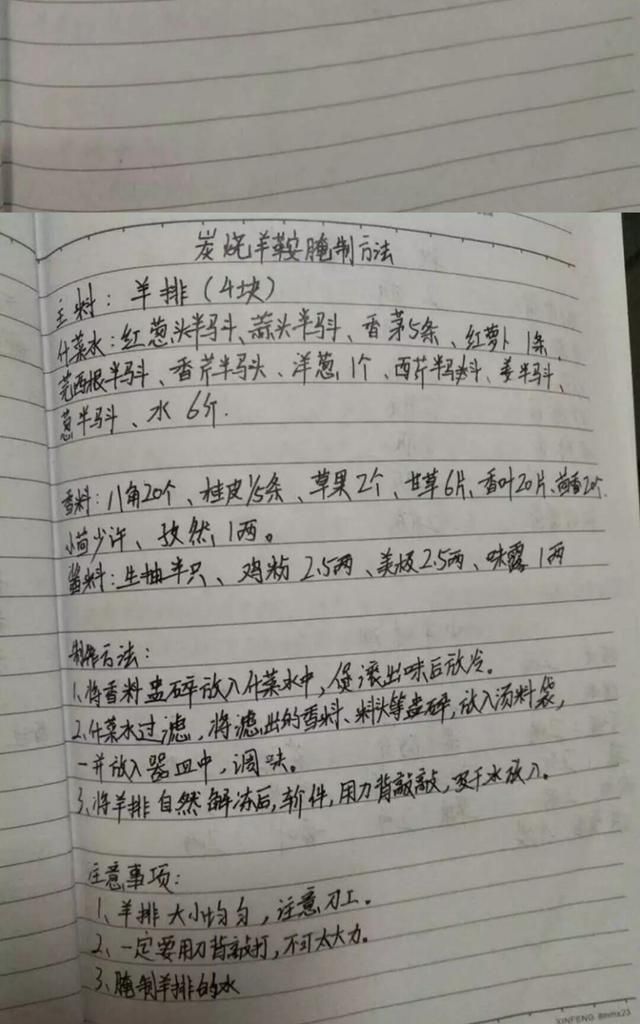 炭烧羊鞍腌制方法
主料：羊排（4块）
什菜水：红葱头半马斗、蒜头半马斗、香茅5条、红萝卜1条、
芫西根半马斗、香芹半马头、洋葱1个、西芹半马斗、姜半马斗、
葱半马斗、水6斤.
香料：八角20个、桂皮1/5条、草果2个、甘草6片、香叶20片、茴香20个
小茴少许、孜然1两。
酱料：生抽半只、鸡粉2.5两、美极2.5两、味露1两
制作方法：
1、将香料盅碎放入什菜水中，煲滚出味后放冷。
2、什菜水过滤，将滤出的香料、料头等盅碎，放入汤料袋，
一并放入器皿中，调味。
3、将羊排自然解冻后，斩件，用刀背敲敲，吸干水放入。
注意事项：
1、羊排大小均匀，注意刀工。
2、一定要用刀背敲打，不可太大力。
3、腌制羊排的水
XINFENG 8mmx23